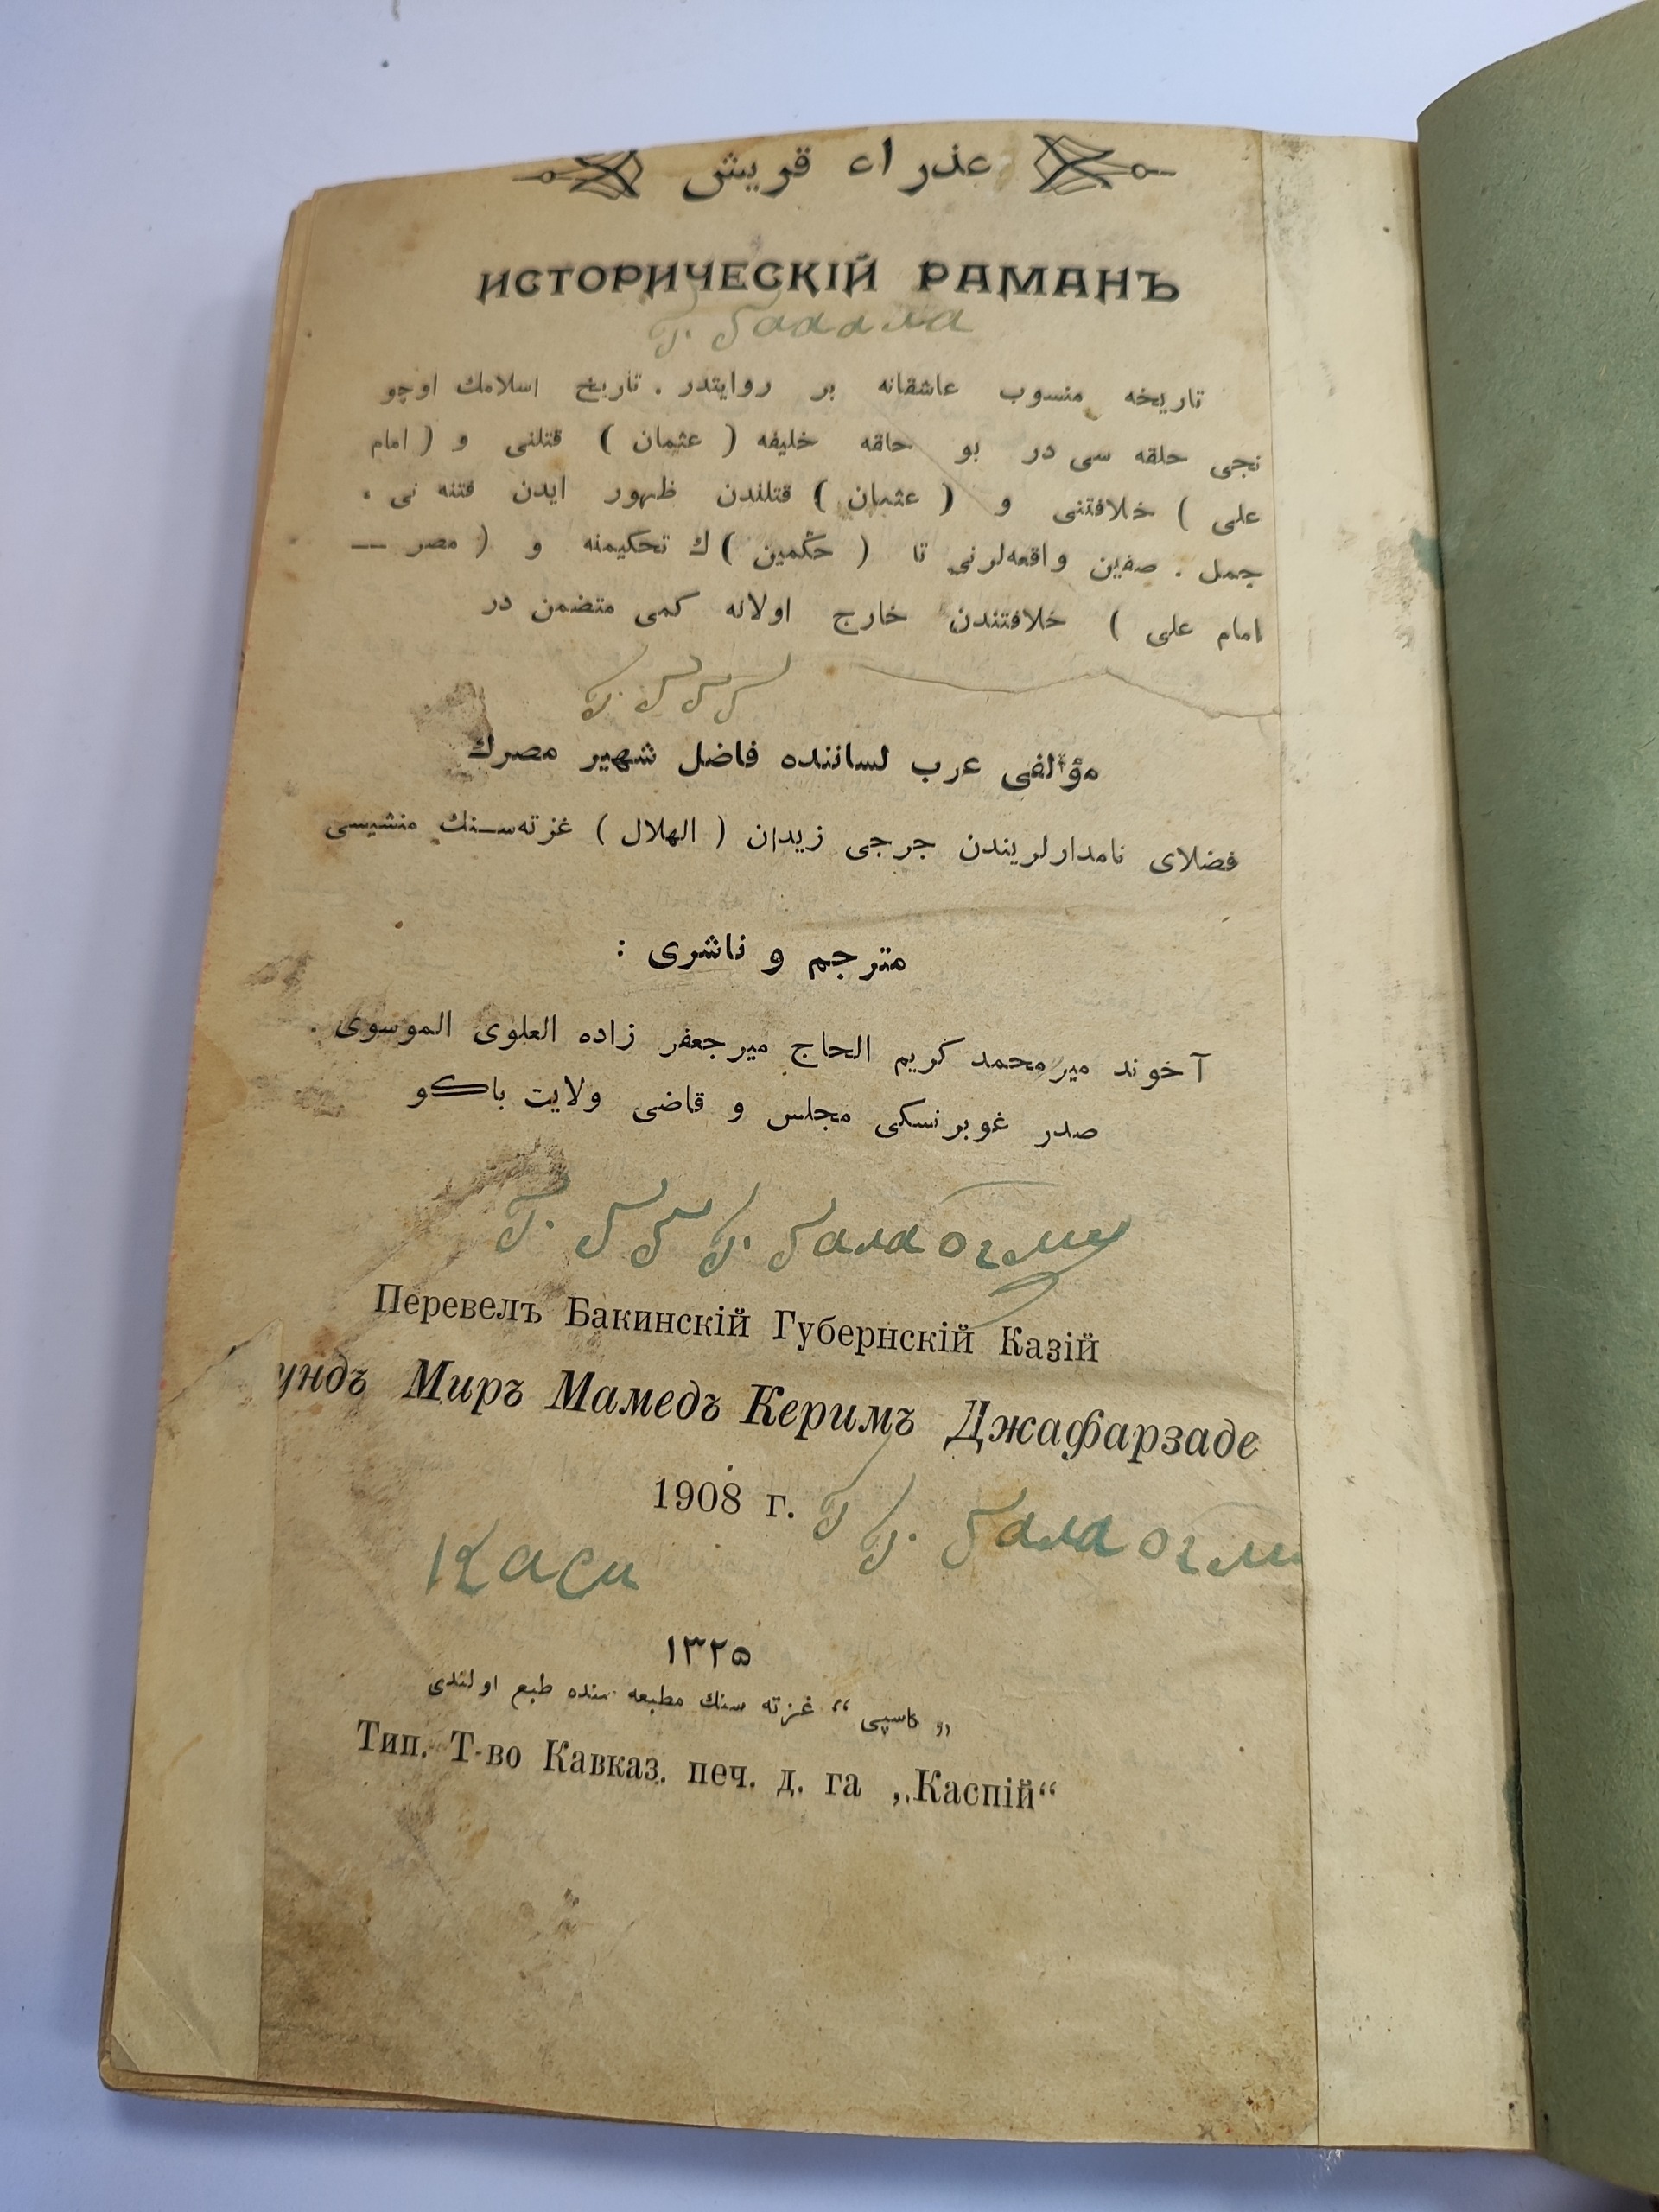 عذراء قریش
ИСТОРИЧЕСКІЙ РАМАНЪ
تاریخه منسوب عاشقانه بر روایتدر . تاریخ اسلامك اوچو
نجی حلقه سی در بو حاقه خلیفه ( عثمان ) قتلنی و ( امام
علی ) خلافتنی و ( عثمان ) قتلندن ظهور ایدن فتنه نی .
جمل . صفین واقعه‌لرنی تا ( حکمین ) ك تحکیمنه و ( مصر —
امام علی ) خلافتندن خارج اولانه کمی متضمن در
مؤلفی عرب لساننده فاضل شهیر مصرك
فضلای نامدارلریندن جرجی زیدان ( الهلال ) غزته‌سـنك منشیسی
مترجم و ناشری :
آخوند میرمحمد کریم الحاج میرجعفر زاده العلوی الموسوی .
صدر غوبرنسکی مجلس و قاضی ولایت باکو
Г. Балаоглы
Перевелъ Бакинскій Губернскій Казій
ундъ Миръ Мамедъ Керимъ Джафарзаде
1908 г.
Г. Балаоглы
Каси
۱۳۲۵
„ کاسپی “ غزته سنك مطبعه سنده طبع اولندی
Тип. Т-во Кавказ. печ. д. га „Каспій“